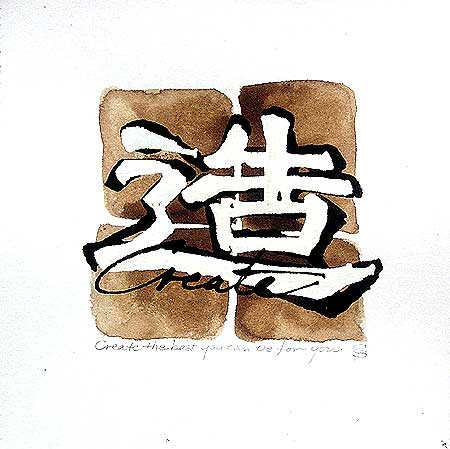 造
Create
Create the best you can be for you